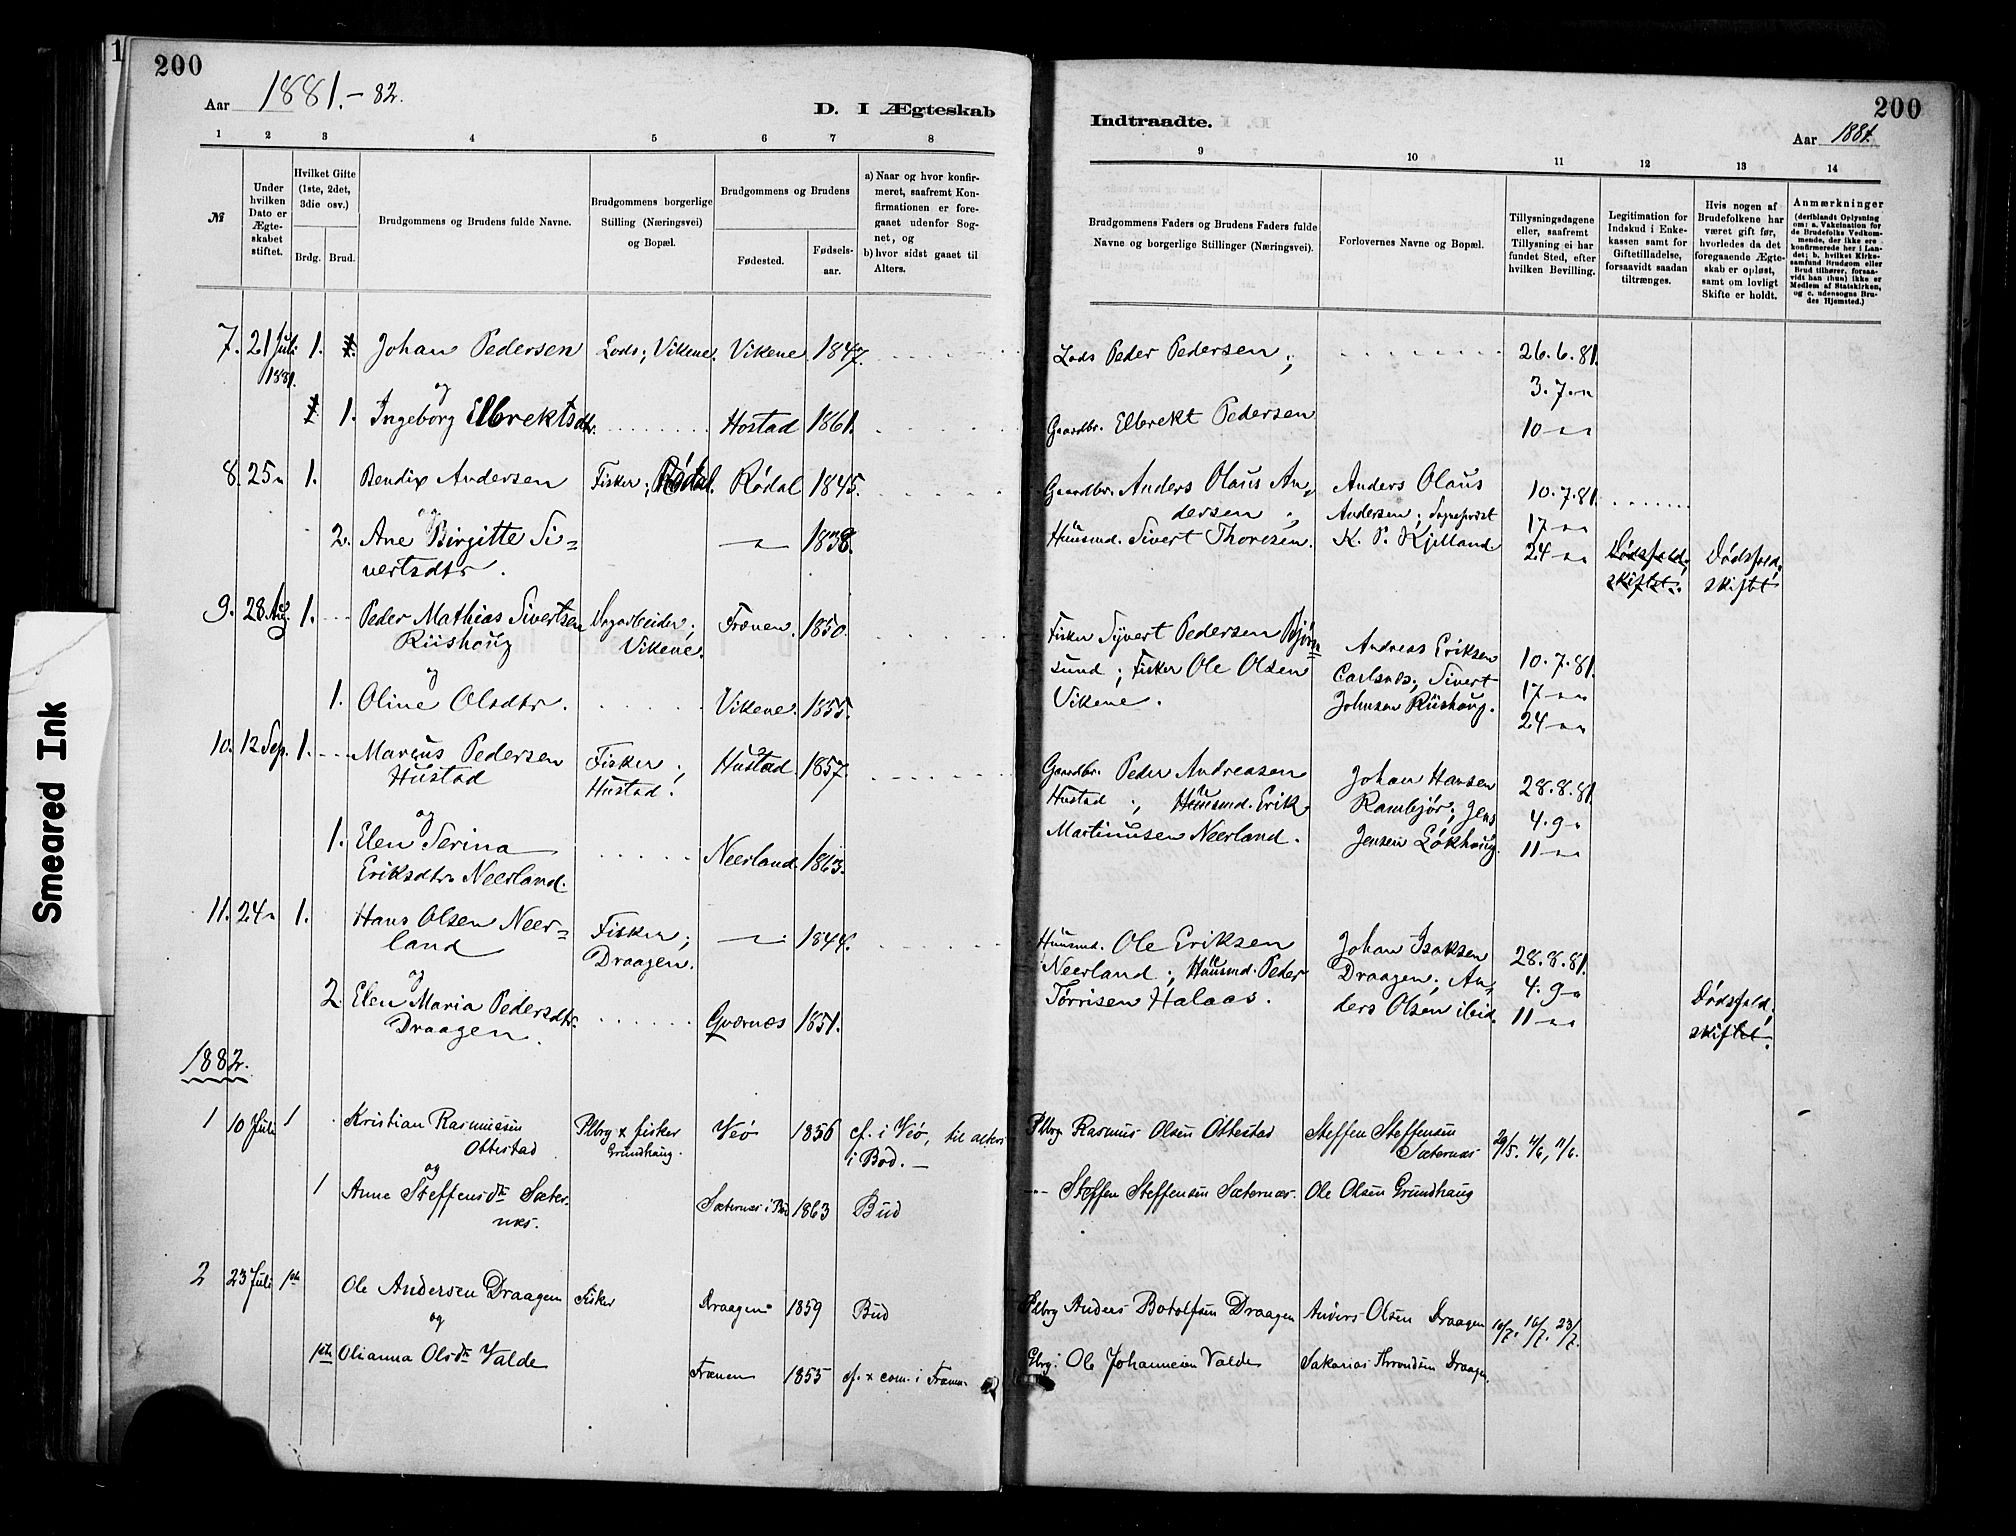 200
Aar 1881.-82.
D. I Ægteskab
1 2 3 4 5 6 7 8
№
Under hvilken Dato er Ægteskabet stiftet.
Hvilket Gifte (1ste, 2det, 3die osv.)
Brdg. Brud.
Brudgommens og Brudens fulde Navne.
Brudgommens borgerlige Stilling (Næringsvei) og Bopæl.
Brudgommens og Brudens
Fødested. Fødsels-aar.
a) Naar og hvor konfirmeret, saafremt Konfirmationen er foregaaet udenfor Sognet, og
b) hvor sidst gaaet til Alters.
7. 21 Juli 1. Johan Pedersen Lods; Vikene. Vikene. 1847.
1881. og
1. Ingeborg Elbrektsdtr. Hostad 1861.
8. 25 " 1. Bendix Andersen Fisker; Rødal. Rødal 1845.
og
2. Ane Birgitte Si= — " — 1838.
vertsdtr.
9. 28 Aug. 1. Peder Mathias Sivertsen Dagarbeider; Frænen. 1850.
Riishoug Vikene.
og
1. Oline Olsdtr. Vikene. 1855.
10. 12 Sep. 1. Marcus Pedersen Fisker; Hustad 1857.
Hustad Hustad.
og
1. Elen Serina Neerland. 1863.
Eriksdtr Neerland.
11. 24 " 1. Hans Olsen Neer= Fisker; — " — 1844.
land Draagen.
og
2. Elen Maria Pedersdtr. Gværnæs 1851.
Draagen.
1882.
1 10 Juli 1 Kristian Rasmussen Plbrg & fisker Veø 1856 cf. i Veø, til alters
Ottestad Grundhaug. i Bod. —
og
1 Anne Steffensdtr Sæter- Sæternæs i Bud 1863 Bud
næs.
2 23 Juli 1ste Ole Andersen Draagen Fisker Draagen 1859 Bud
og
1ste Olianna Olsdtr Valde Frænen 1855 cf. & com. i Frænen
200
Indtraadte.
Aar 1881.
9 10 11 12 13 14
Brudgommens Faders og Brudens Faders fulde Navne og borgerlige Stillinger (Næringsvei).
Forlovernes Navne og Bopæl.
Tillysningsdagene eller, saafremt Tillysning ei har fundet Sted, efter hvilken Bevilling.
Legitimation for Indskud i Enkekassen samt for Giftetilladelse, forsaavidt saadan tiltrænges.
Hvis nogen af Brudefolkene har været gift før, hvorledes da det foregaaende Ægteskab er opløst, samt om lovligt Skifte er holdt.
Anmærkninger
(deriblandt Oplysning om: a. Vakcination for de Brudefolks Vedkommende, der ikke ere konfirmerede her i Landet; b. hvilket Kirkesamfund Brudgom eller Brud tilhører, forsaavidt han (hun) ikke er Medlem af Statskirken, og c. udensogns Brudes Hjemsted.)
Lods Peder Pedersen; 26.6.81.
3.7. "
Gaardbr. Elbrekt Pedersen 10 — " "
Gaardbr. Anders Olaus An= Anders Olaus 10.7.81.
dersen; Andersen; Sogneprest 17 — " "
Huusmd. Sivert Thoresen. K. P. Kjelland. 24 — " " Dødsfald; skiftet. Dødsfald; skiftet
Fisker Syvert Pedersen Bjørn= Andreas Eriksen 10.7.81.
sund; Fisker Ole Olsen Carlsnæs; Sivert 17 — " "
Vikene. Johnsen Riishoug. 24 — " "
Gaardbr. Peder Andreasen Johan Hansen 28.8.81.
Hustad; Huusmd. Erik Rambjør; Jens 4.9 "
Martinusen Neerland. Jensen Løkhoug. 11 — " "
Huusmd. Ole Eriksen Johan Isaksen 28.8.81.
Neerland; Huusmd. Peder Draagen; An= 4.9 "
Tørrisen Halaas. ders Olsen ibid. 11 — " " Dødsfald; skiftet.
Plbrg Rasmus Olsen Ottestad Steffen Steffensen 29/5. 4/6, 11/6.
Sæternæs
— " — Steffen Steffensen Sæternæs. Ole Olsen Grundhaug
Plbrg Anders Botolfsen Draagen Anders Olsen Draagen 10/7. 16/7. 23/7.
Gbrg. Ole Johannesen Valde Sakarias Throndsen Draagen.
Smeared Ink